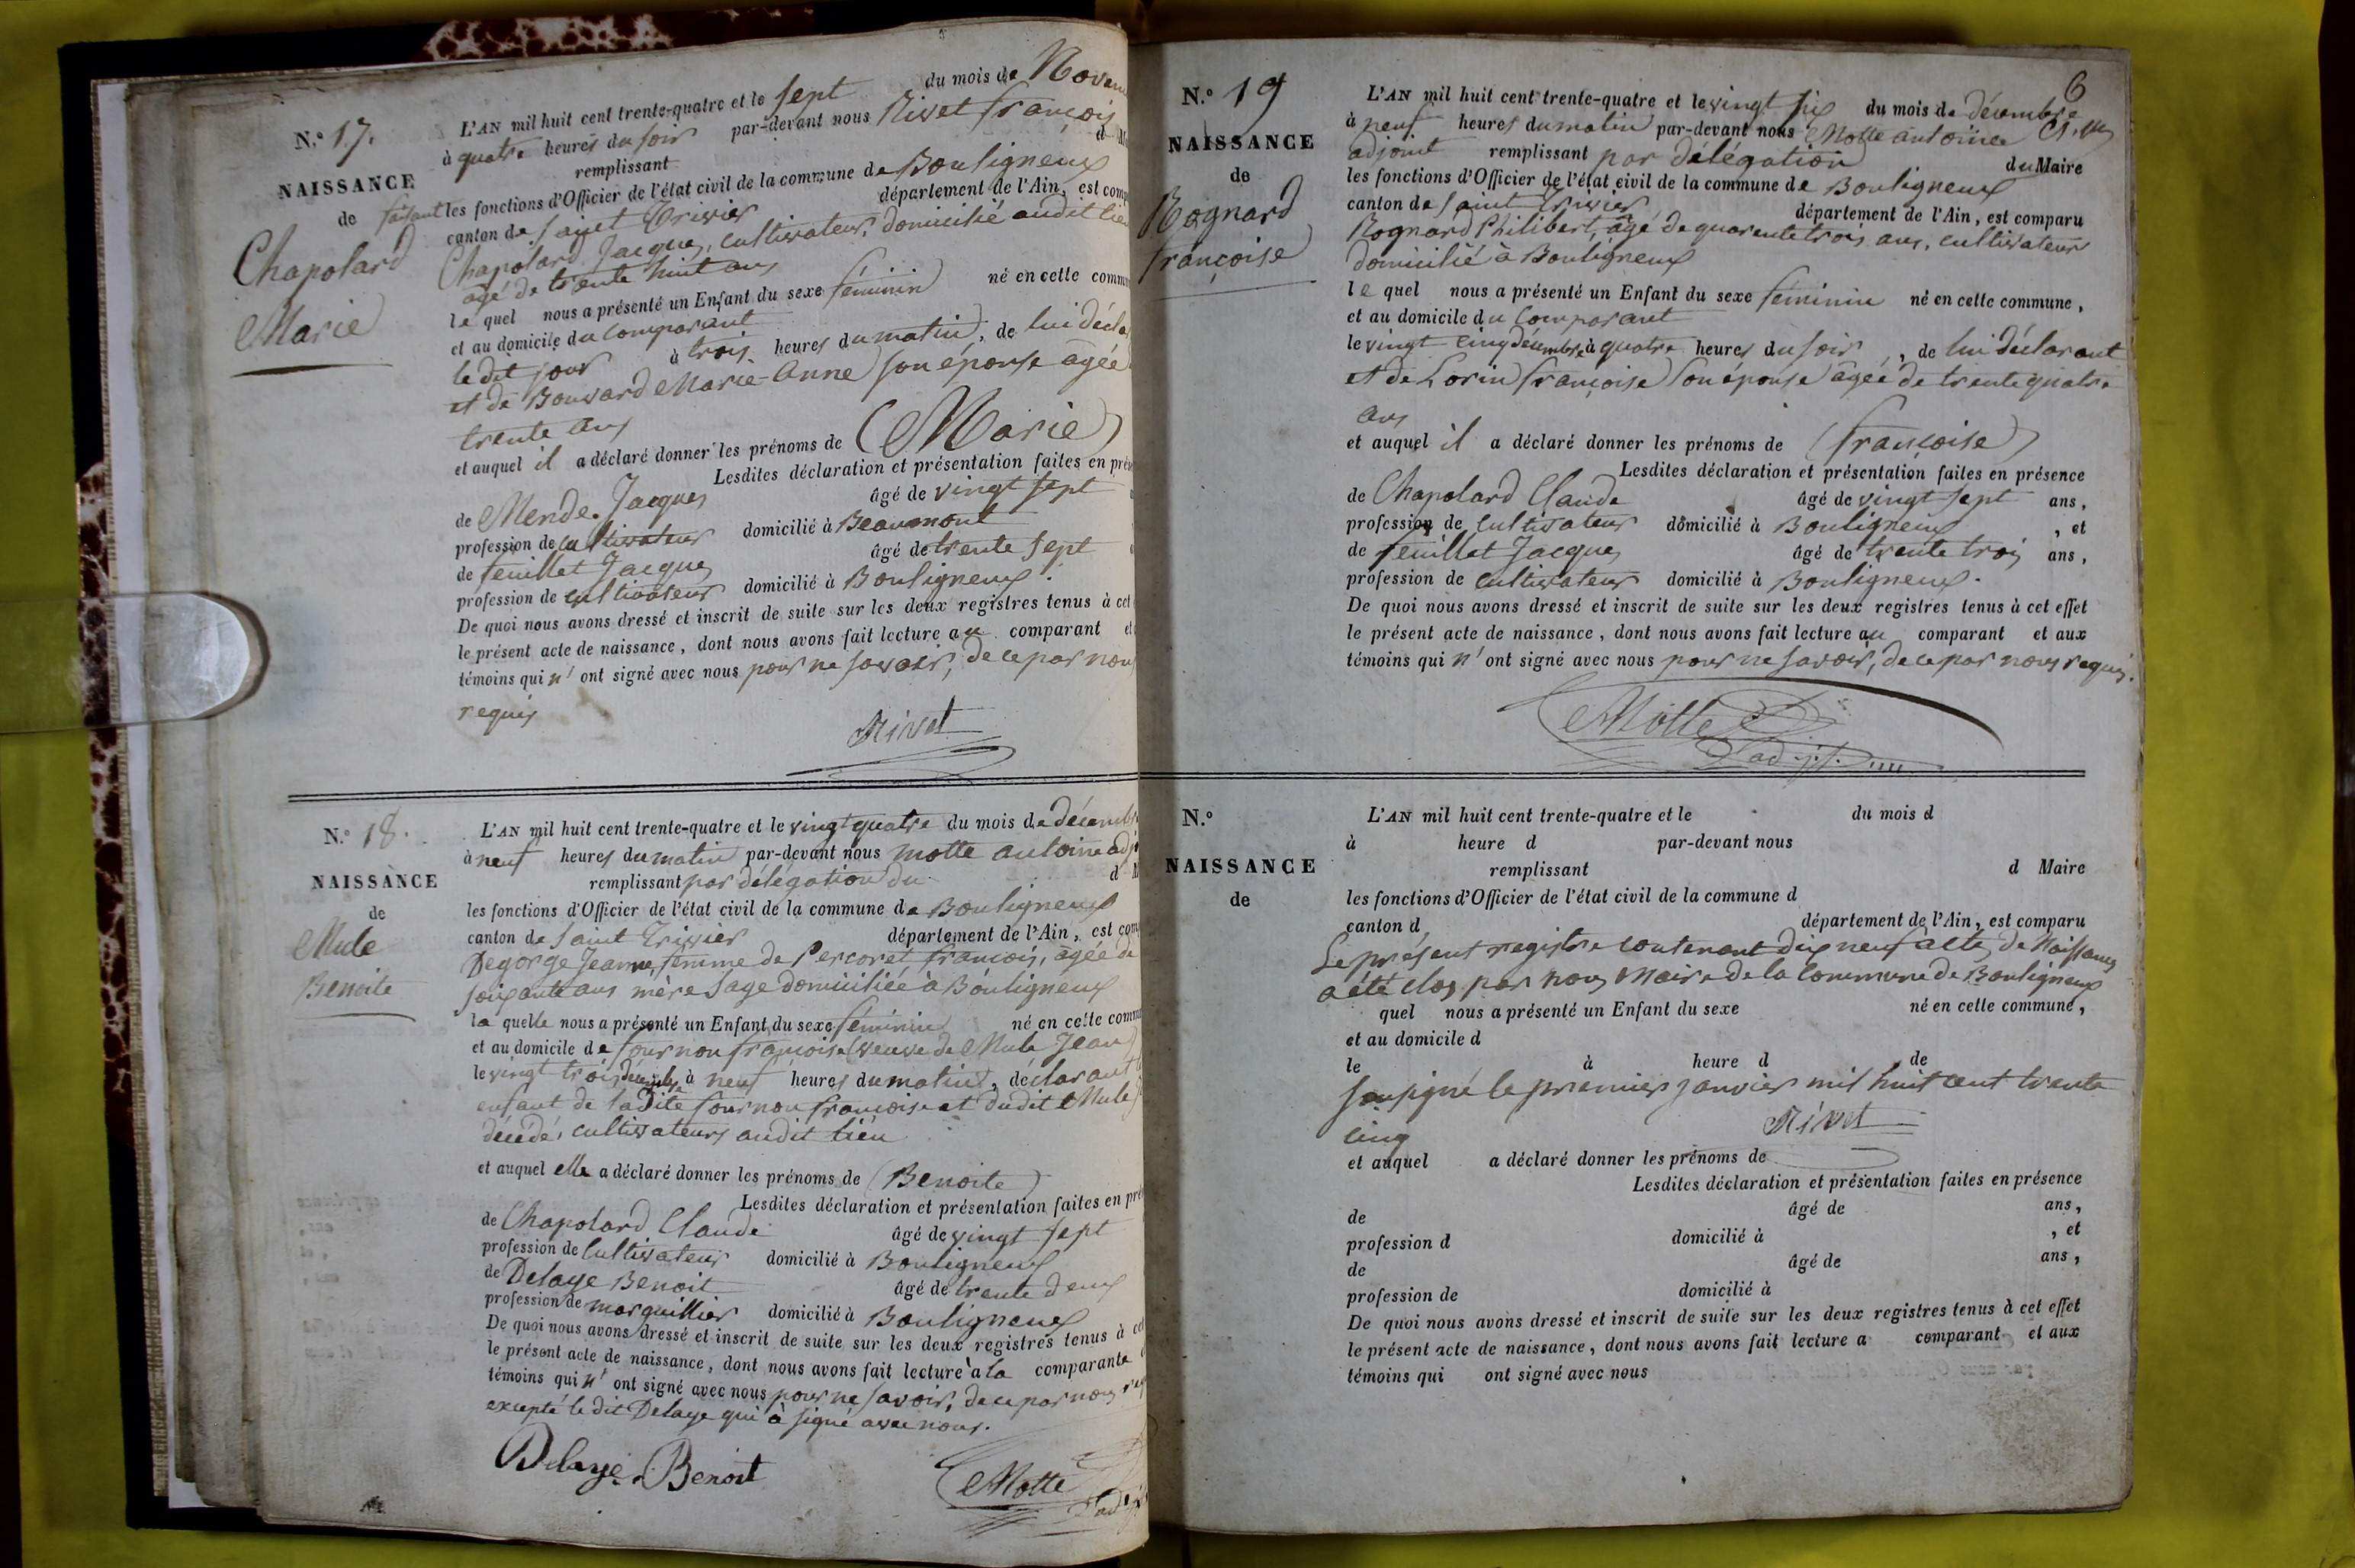 N.° 17.
NAISSANCE
de
Chapolard
Marie
L'AN mil huit cent trente-quatre et le sept du mois de Novem
à quatre heures du soir par-devant nous Rivet françois
remplissant d M
faisant les fonctions d'Officier de l'état civil de la commune de Bouligneux
canton de saint Trivier département de l'Ain, est comp
Chapolard Jacques, cultivateur, domicilié audit lieu
âgé de trente huit ans
le quel nous a présenté un Enfant du sexe féminin né en cette comm
et au domicile du comparant
le dit jour à trois heures du matin, de lui décla
et de Bouvard Marie-Anne son épouse âgée
trente ans
et auquel il a déclaré donner les prénoms de (Marie)
Lesdites déclaration et présentation faites en prés
de Mende. Jacques âgé de vingt sept
profession de cultivateur domicilié à Beaumont
de feuillet Jacques âgé de trente sept
profession de cultivateur domicilié à Bouligneux.
De quoi nous avons dressé et inscrit de suite sur les deux registres tenus à cet
le présent acte de naissance, dont nous avons fait lecture au comparant et
témoins qui n' ont signé avec nous pour ne savoir, de ce par nous
requis
Rivet
N.° 18.
NAISSANCE
de
Mule
Benoite
L'AN mil huit cent trente-quatre et le vingt quatre du mois de décemb
à neuf heures du matin par-devant nous motte antoine adj
remplissant par délégation du d M
les fonctions d'Officier de l'état civil de la commune de Bouligneux
canton de saint Trivier département de l'Ain, est com
Degorge Jeanne, femme de Percoret françois, âgée de
soixante ans mère sage domiciliée à Bouligneux
la quelle nous a présenté un Enfant du sexe féminin né en cette comm
et au domicile de fournon françoise veuve de Mule Jean
le vingt trois décembre à neuf heures du matin, déclarant l
enfant de ladite fournon françoise et dudit Mule J
décédé, cultivateurs audit lieu
et auquel elle a déclaré donner les prénoms de (Benoite)
Lesdites déclaration et présentation faites en pré
de Chapolard Claude âgé de vingt sept
profession de cultivateur domicilié à Bouligneux
de Delaye Benoit âgé de trente deux
profession de marguillier domicilié à Bouligneux
De quoi nous avons dressé et inscrit de suite sur les deux registres tenus à cet
le présent acte de naissance, dont nous avons fait lecture à la comparante
témoins qui n' ont signé avec nous pour ne savoir, de ce par nous req
excepté le dit Delaye qui à signé avec nous.
Delaye Benoit
Motte
adj
6
N.° 19
NAISSANCE
de
Rognard
françoise
L'AN mil huit cent trente-quatre et le vingt six du mois de décembre
à neuf heures du matin par-devant nous Motte antoine
adjoint remplissant par délégation du Maire
les fonctions d'Officier de l'état civil de la commune de Bouligneux
canton de saint Trivier département de l'Ain, est comparu
Rognard Philibert, âgé de quarente trois ans, cultivateur
domicilié à Bouligneux
le quel nous a présenté un Enfant du sexe féminin né en cette commune,
et au domicile du comparant
le vingt cinq décembre à quatre heures du soir, de lui déclarant
et de Lorin françoise son épouse âgée de trente quatre
ans
et auquel il a déclaré donner les prénoms de (françoise)
Lesdites déclaration et présentation faites en présence
de Chapolard Claude âgé de vingt sept ans,
profession de cultivateur domicilié à Bouligneux, et
de feuillet Jacques âgé de trente trois ans,
profession de cultivateur domicilié à Bouligneux.
De quoi nous avons dressé et inscrit de suite sur les deux registres tenus à cet effet
le présent acte de naissance, dont nous avons fait lecture au comparant et aux
témoins qui n' ont signé avec nous pour ne savoir, de ce par nous requis.
Motte
adjt.
N.°
NAISSANCE
de
L'AN mil huit cent trente-quatre et le du mois d
à heure d par-devant nous
remplissant d Maire
les fonctions d'Officier de l'état civil de la commune d
canton d département de l'Ain, est comparu
Le présent registre contenant dix neuf actes de Naissances
a été clos par nous Maire de la Commune de Bouligneux
quel nous a présenté un Enfant du sexe né en cette commune,
et au domicile d
le à heure d de
soussigné le premier Janvier mil huit cent trente
cinq Rivet
et auquel a déclaré donner les prénoms de
Lesdites déclaration et présentation faites en présence
de âgé de ans,
profession d domicilié à , et
de âgé de ans,
profession de domicilié à
De quoi nous avons dressé et inscrit de suite sur les deux registres tenus à cet effet
le présent acte de naissance, dont nous avons fait lecture a comparant et aux
témoins qui ont signé avec nous